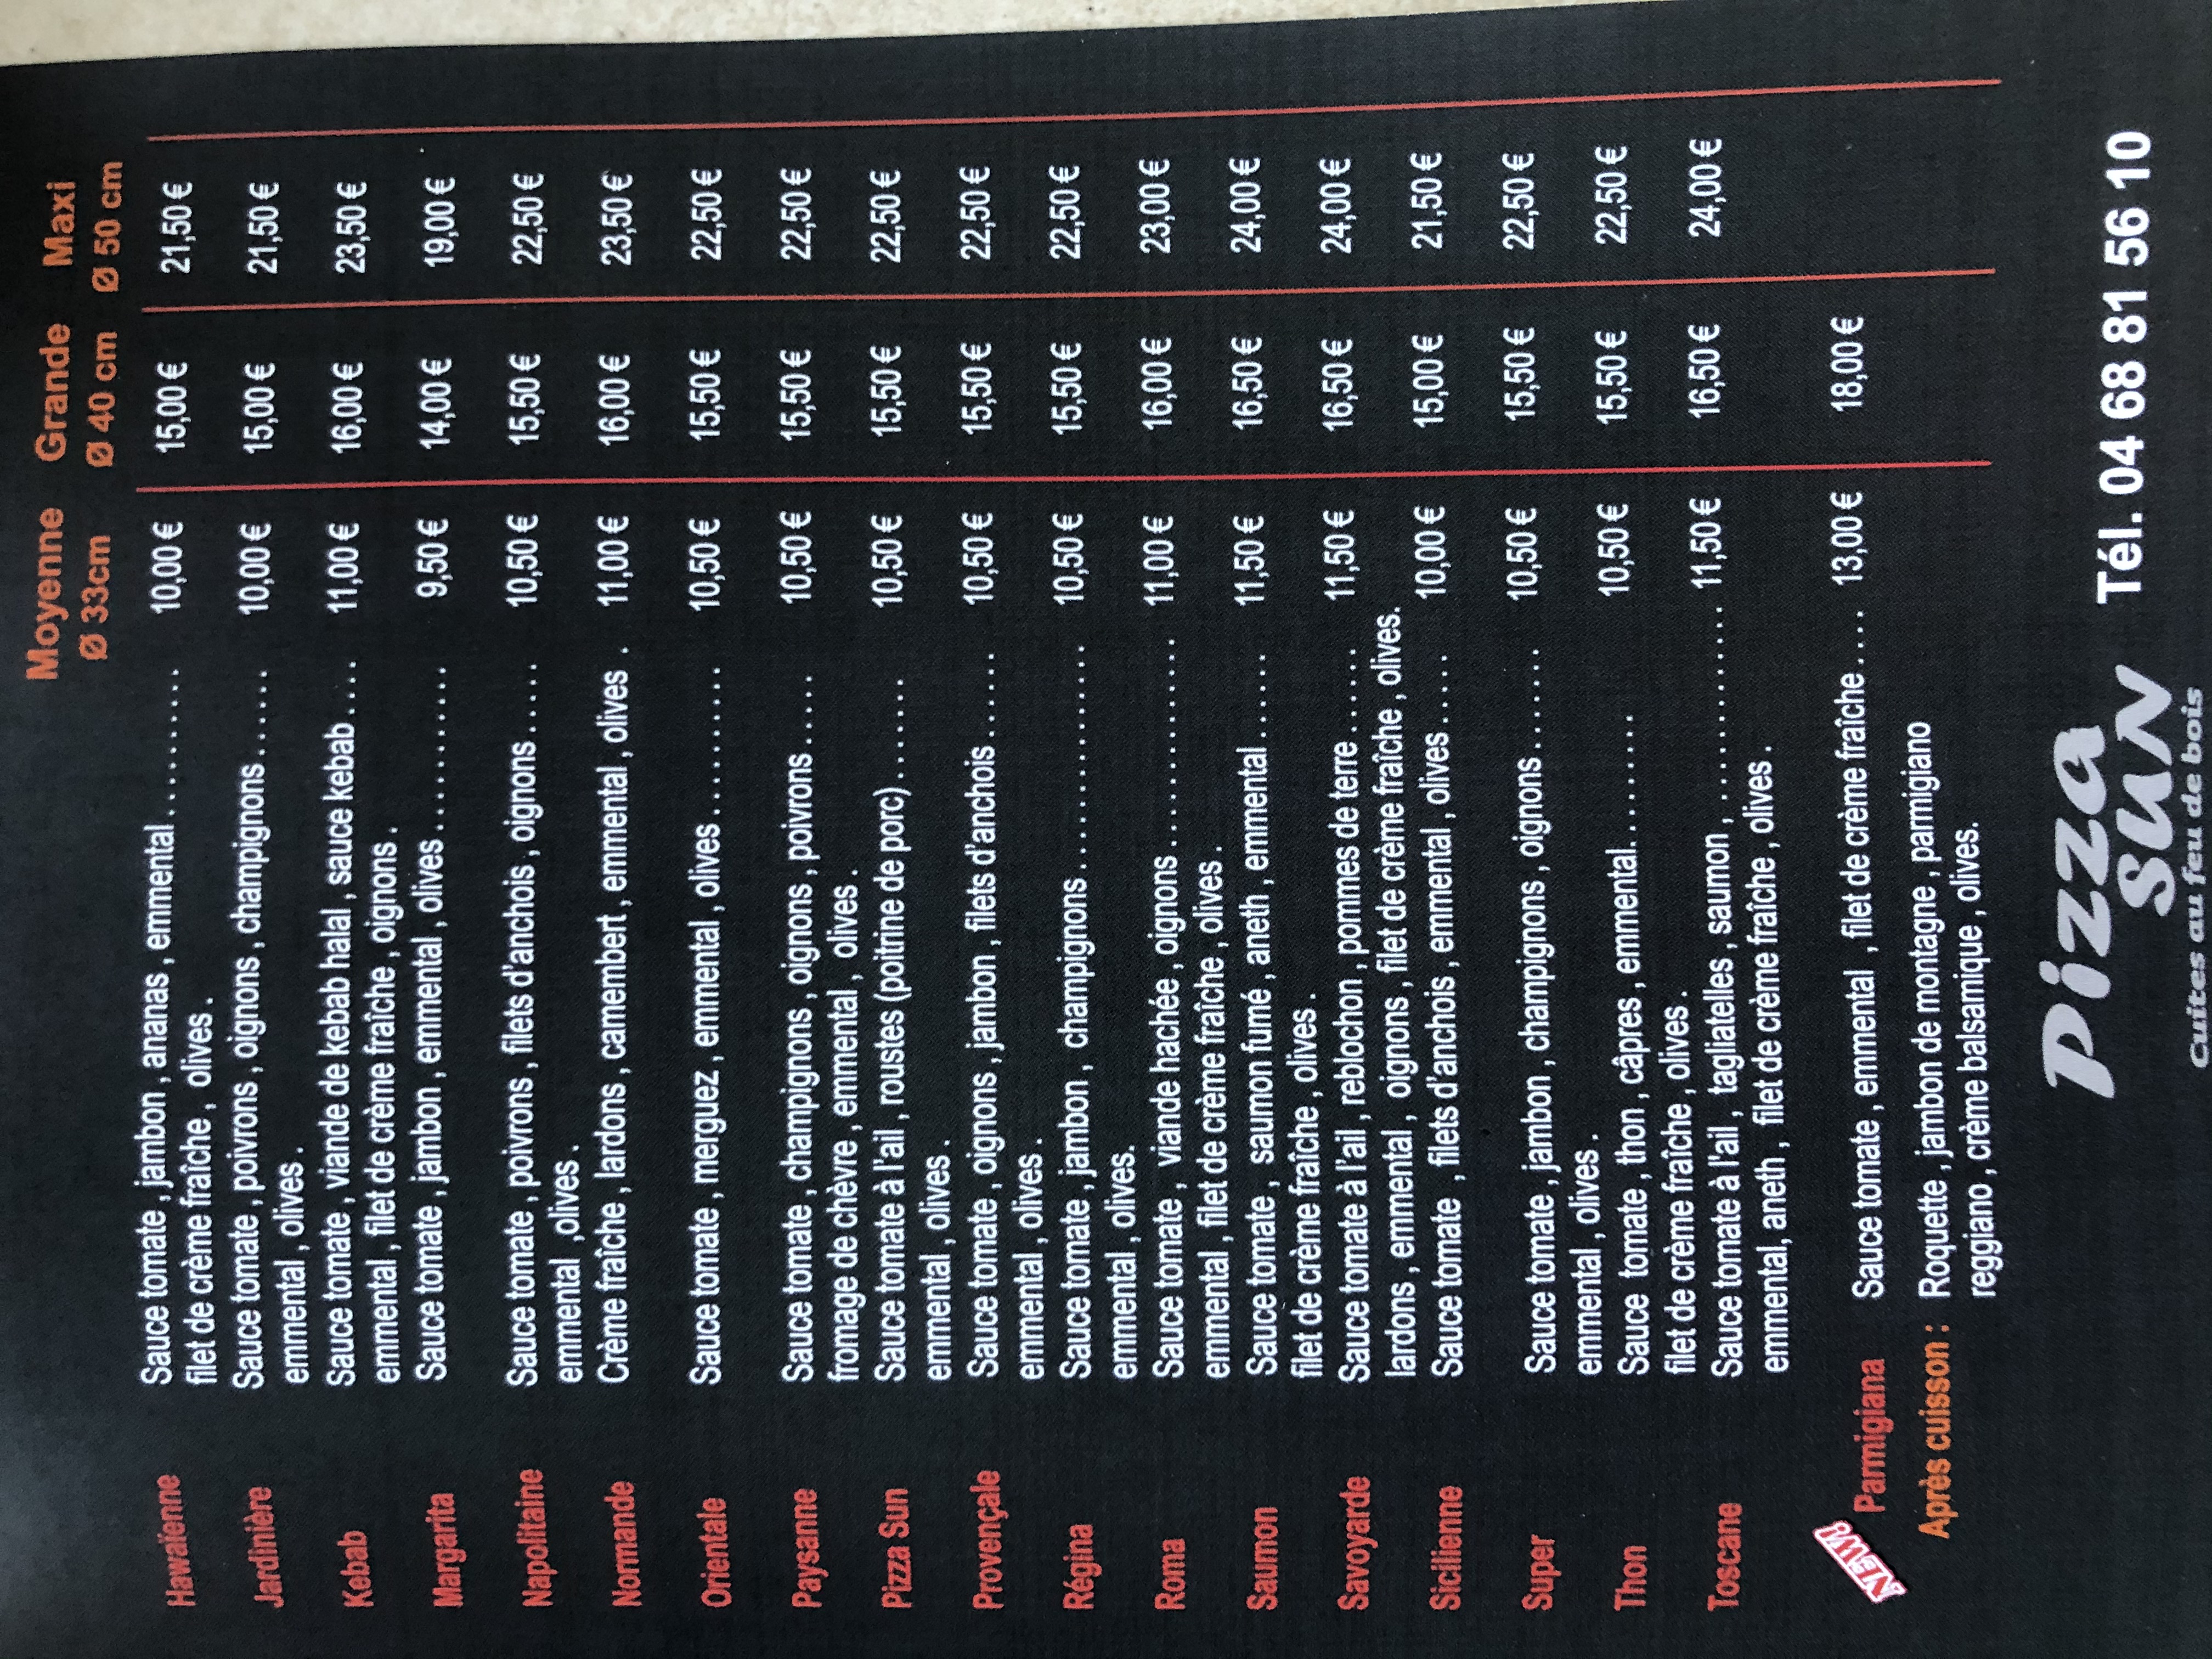 Moyenne Grande Maxi
Ø 33cm Ø 40 cm Ø 50 cm
Hawaïenne Sauce tomate , jambon , ananas , emmental........... 10,00 € 15,00 € 21,50 €
filet de crème fraîche , olives .
Jardinière Sauce tomate , poivrons , oignons , champignons...... 10,00 € 15,00 € 21,50 €
emmental , olives .
Kebab Sauce tomate , viande de kebab halal , sauce kebab.... 11,00 € 16,00 € 23,50 €
emmental , filet de crème fraîche , oignons .
Margarita Sauce tomate , jambon , emmental , olives............ 9,50 € 14,00 € 19,00 €
Napolitaine Sauce tomate , poivrons , filets d'anchois , oignons..... 10,50 € 15,50 € 22,50 €
emmental ,olives .
Normande Crème fraîche , lardons , camembert , emmental , olives . 11,00 € 16,00 € 23,50 €
Orientale Sauce tomate , merguez , emmental , olives........... 10,50 € 15,50 € 22,50 €
Paysanne Sauce tomate , champignons , oignons , poivrons ...... 10,50 € 15,50 € 22,50 €
fromage de chèvre , emmental , olives .
Pizza Sun Sauce tomate à l'ail , roustes (poitrine de porc)........ 10,50 € 15,50 € 22,50 €
emmental , olives .
Provençale Sauce tomate , oignons , jambon , filets d'anchois...... 10,50 € 15,50 € 22,50 €
emmental , olives .
Régina Sauce tomate , jambon , champignons................ 10,50 € 15,50 € 22,50 €
emmental , olives.
Roma Sauce tomate , viande hachée , oignons ............... 11,00 € 16,00 € 23,00 €
emmental , filet de crème fraîche , olives .
Saumon Sauce tomate , saumon fumé , aneth , emmental ...... 11,50 € 16,50 € 24,00 €
filet de crème fraîche , olives .
Savoyarde Sauce tomate à l'ail , reblochon , pommes de terre ...... 11,50 € 16,50 € 24,00 €
lardons , emmental , oignons , filet de crème fraîche , olives.
Sicilienne Sauce tomate , filets d'anchois , emmental , olives..... 10,00 € 15,00 € 21,50 €
Super Sauce tomate , jambon , champignons , oignons........ 10,50 € 15,50 € 22,50 €
emmental , olives .
Thon Sauce tomate , thon , câpres , emmental.......... 10,50 € 15,50 € 22,50 €
filet de crème fraîche , olives .
Toscane Sauce tomate à l'ail , tagliatelles , saumon , .............. 11,50 € 16,50 € 24,00 €
emmental, aneth , filet de crème fraîche , olives .
NEW! Parmigiana Sauce tomate , emmental , filet de crème fraîche.... 13,00 € 18,00 €
Après cuisson : Roquette , jambon de montagne , parmigiano
reggiano , crème balsamique , olives.
Pizza
Sun
Tél. 04 68 81 56 10
Cuites au feu de bois